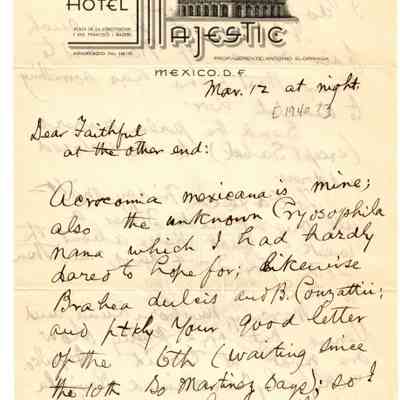 HOTEL MAJESTIC
PLAZA DE LA CONSTITUCION
Y AVE. FRANCISCO I. MADERO
PROP. Y GERENTE. ANTONIO
MEXICO. D. F.
Mar. 12 at night.
Dear Faithful
at the other end:
Acrocomia mexicana is mine;
also the unknown Cryosophila
nana which I had hardly
dared to hope for; likewise
Brahea dulcis and B. Conzattii;
and ptkly Your good letter
of the 6th (waiting since
the 10th So Martinez Says); so I